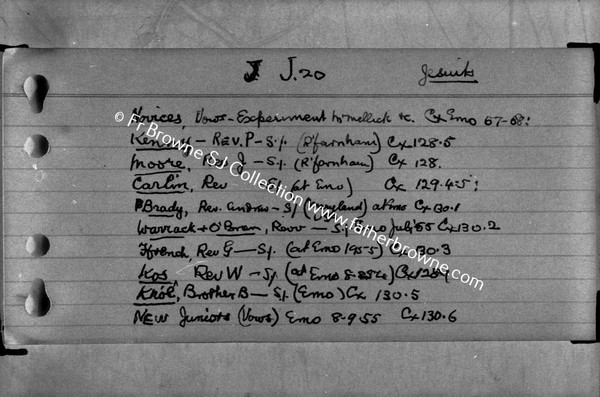 J J.20 Jesuits
Novices, Vows - Experiment to mellick &c. Cx Emo 67-68:
Kennedy - REV. P - S.J. (R'farnham) Cx 128.5
Moore, Rev J - S.J. (R'farnham) Cx 128.
Carlin, Rev - S.J. (at Emo) Cx 129.4-5;
Brady, Rev. Andrew - SJ (Maryland) at Emo Cx 130.1
Warrack + O'Brien, Revv - SJ Emo July '55 Cx 130.2
Ffrench, Rev G - S.J. (at Emo 1955) Cx 130.3
Kos, Rev W - S.J. (at Emo
Król, Brother B - S.J. (Emo) Cx 130.5
NEW Juniors (Vows) Emo 8.9.55 Cx 130.6
© Fr Browne SJ Collection www.fatherbrowne.com